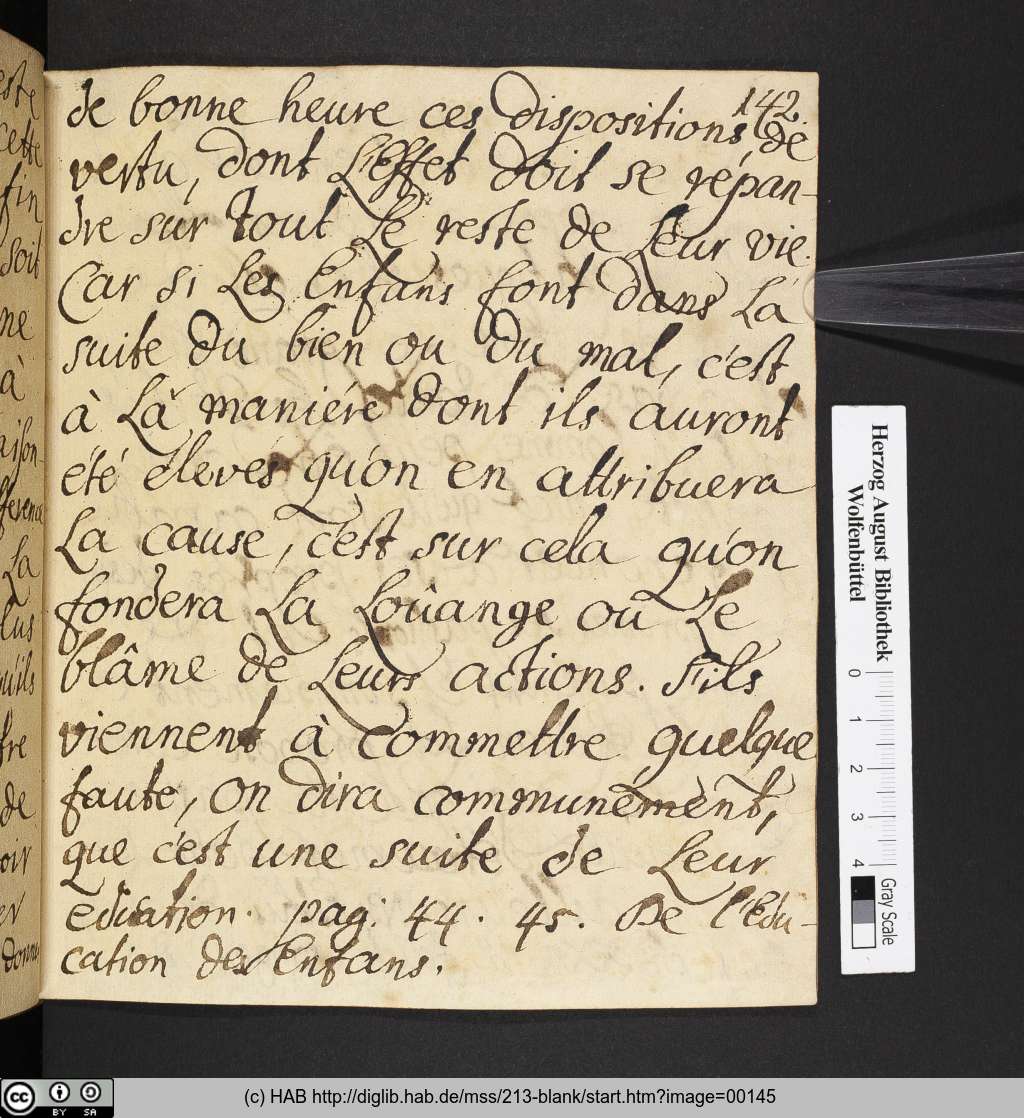 142.
de bonne heure ces dispositions de
vertu, dont L'Effet doit se répan-
dre sur tout Le reste de Leur vie.
Car si Les Enfans font dans La
suite du bien ou du mal, c'est
à La maniére dont ils auront
été élevés qu'on en attribuera
La cause, c'est sur cela qu'on
fondera La Loûange ou Le
blâme de Leurs actions. S'ils
viennent à commettre quelque
faute, on dira communément,
que c'est une suite de Leur
education. pag: 44. 45. De l'Edu-
cation des Enfans.
este
cette
fin
soit
ne
à
aison-
fference
La
lus
qu'ils
tre
de
oir
er
donne
Herzog August Bibliothek
Wolfenbüttel
0 1 2 3 4
Gray Scale
cc BY SA
(c) HAB http://diglib.hab.de/mss/213-blank/start.htm?image=00145